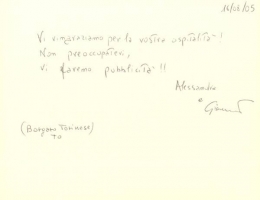 16/06/05
Vi ringraziamo per la vostra ospitalità!
Non preoccupatevi,
vi faremo pubblicità!!
Alessandra
e
(Borgaro Torinese)
TO